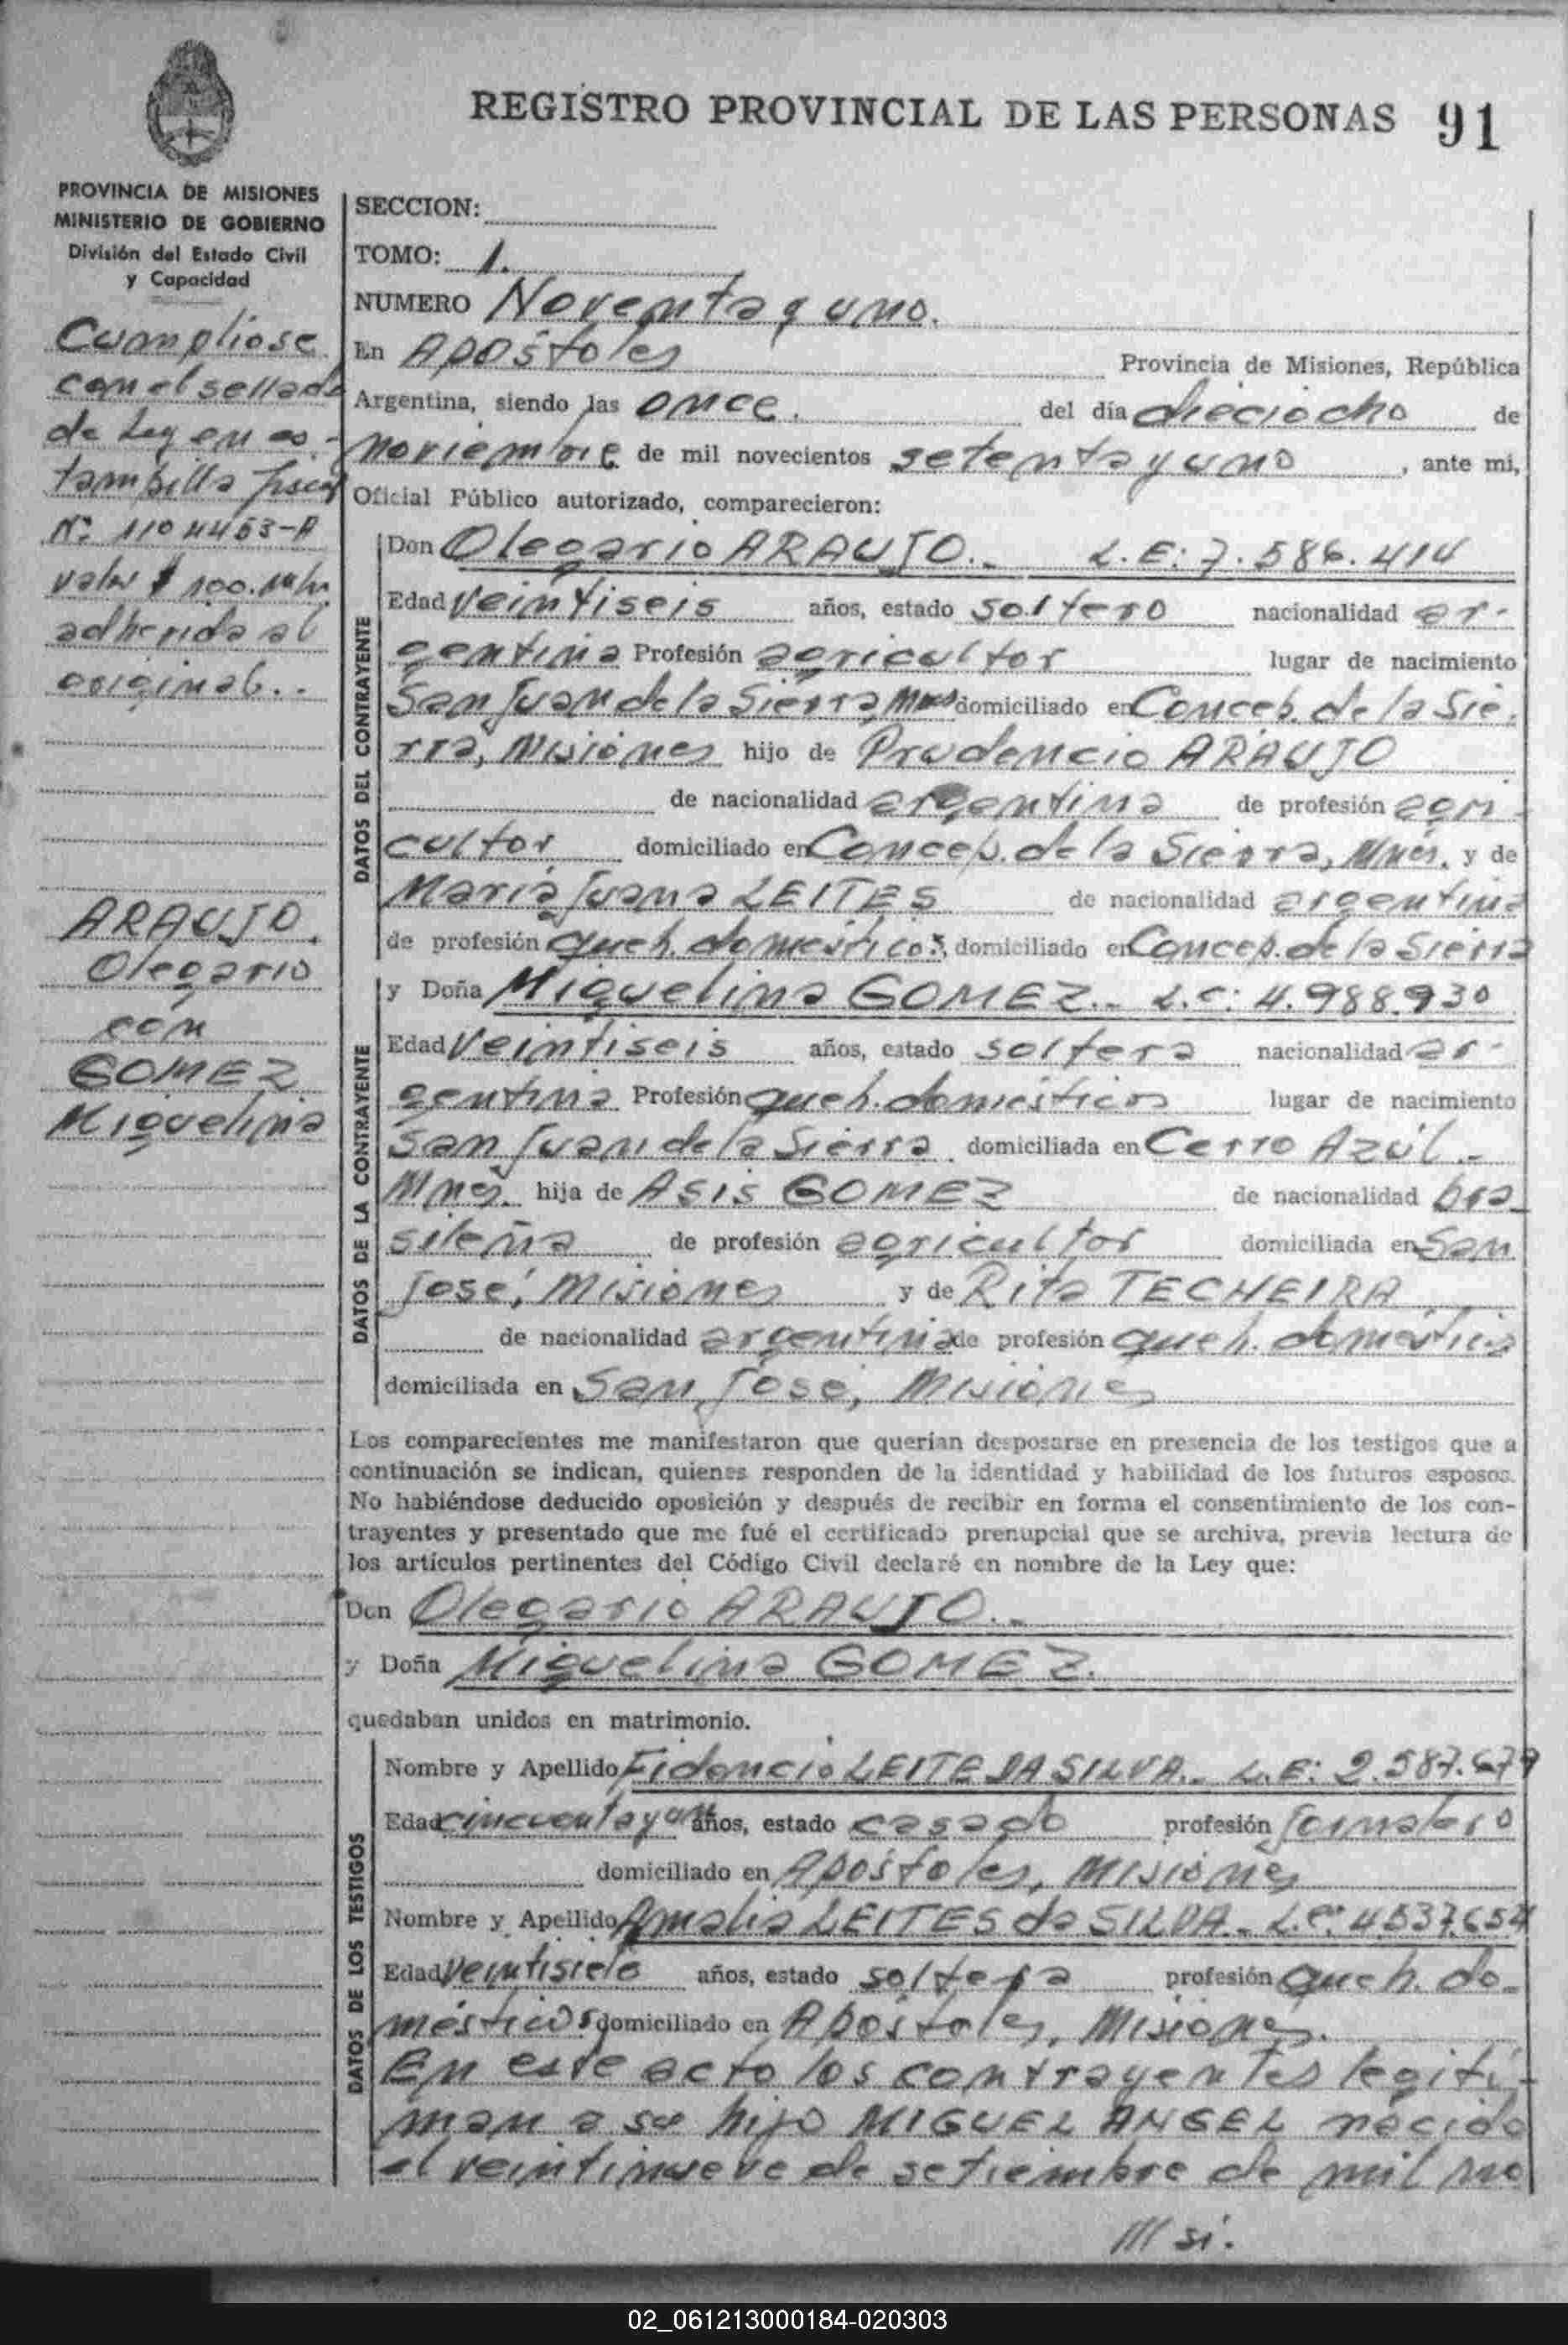 REGISTRO PROVINCIAL DE LAS PERSONAS 91
PROVINCIA DE MISIONES
MINISTERIO DE GOBIERNO
División del Estado Civil
y Capacidad
Cumpliose
con el sellado
de Ley en es-
tampilla fiscal
Nº 1104453-A
valor $ 100. m/n
adherida al
original..
ARAUJO
Olegario
con
GOMEZ
Miguelina
SECCION:
TOMO: 1.
NUMERO Noventa y uno.
En Apóstoles Provincia de Misiones, República
Argentina, siendo las once. del día dieciocho de
noviembre de mil novecientos setenta y uno, ante mi,
Oficial Público autorizado, comparecieron:
DATOS DEL CONTRAYENTE
Don Olegario ARAUJO.- L.E: 7.586.414
Edad veintiseis años, estado soltero nacionalidad ar-
gentina Profesión agricultor lugar de nacimiento
San Juan de la Sierra, Mnes domiciliado en Concep. de la Sie-
rra, Misiones hijo de Prudencio ARAUJO
de nacionalidad argentina de profesión agri-
cultor domiciliado en Concep. de la Sierra, Mnes. y de
Maria Juana LEITES de nacionalidad argentina
de profesión queh. domésticos, domiciliado en Concep. de la Sierra
DATOS DE LA CONTRAYENTE
y Doña Miguelina GOMEZ.- L.C: 4.988.930
Edad veintiseis años, estado soltera nacionalidad ar-
gentina Profesión queh. domésticos lugar de nacimiento
San Juan de la Sierra. domiciliada en Cerro Azúl-
Mnes. hija de Asis GOMEZ de nacionalidad bra
sileña de profesión agricultor domiciliada en San
José, Misiones y de Rita TECHEIRA
de nacionalidad argentina de profesión queh. doméstico
domiciliada en San José, Misiones
Los comparecientes me manifestaron que querían desposarse en presencia de los testigos que a
continuación se indican, quienes responden de la identidad y habilidad de los futuros esposos.
No habiéndose deducido oposición y después de recibir en forma el consentimiento de los con-
trayentes y presentado que me fué el certificado prenupcial que se archiva, previa lectura de
los artículos pertinentes del Código Civil declaré en nombre de la Ley que:
Don Olegario ARAUJO.-
y Doña Miguelina GOMEZ.
quedaban unidos en matrimonio.
DATOS DE LOS TESTIGOS
Nombre y Apellido Fidencio LEITE DA SILVA.- L.E: 2.587.679
Edad cincuenta y un años, estado casado profesión jornalero
domiciliado en Apóstoles, Misiones
Nombre y Apellido Amalia LEITES da SILVA.- L.C: 4.537.654
Edad veintisiete años, estado soltera profesión queh. do-
mésticos domiciliado en Apóstoles, Misiones.
En este acto los contrayentes legiti-
man a su hijo MIGUEL ANGEL nacido
el veintinueve de setiembre de mil no
/// si.
02_061213000184-020303